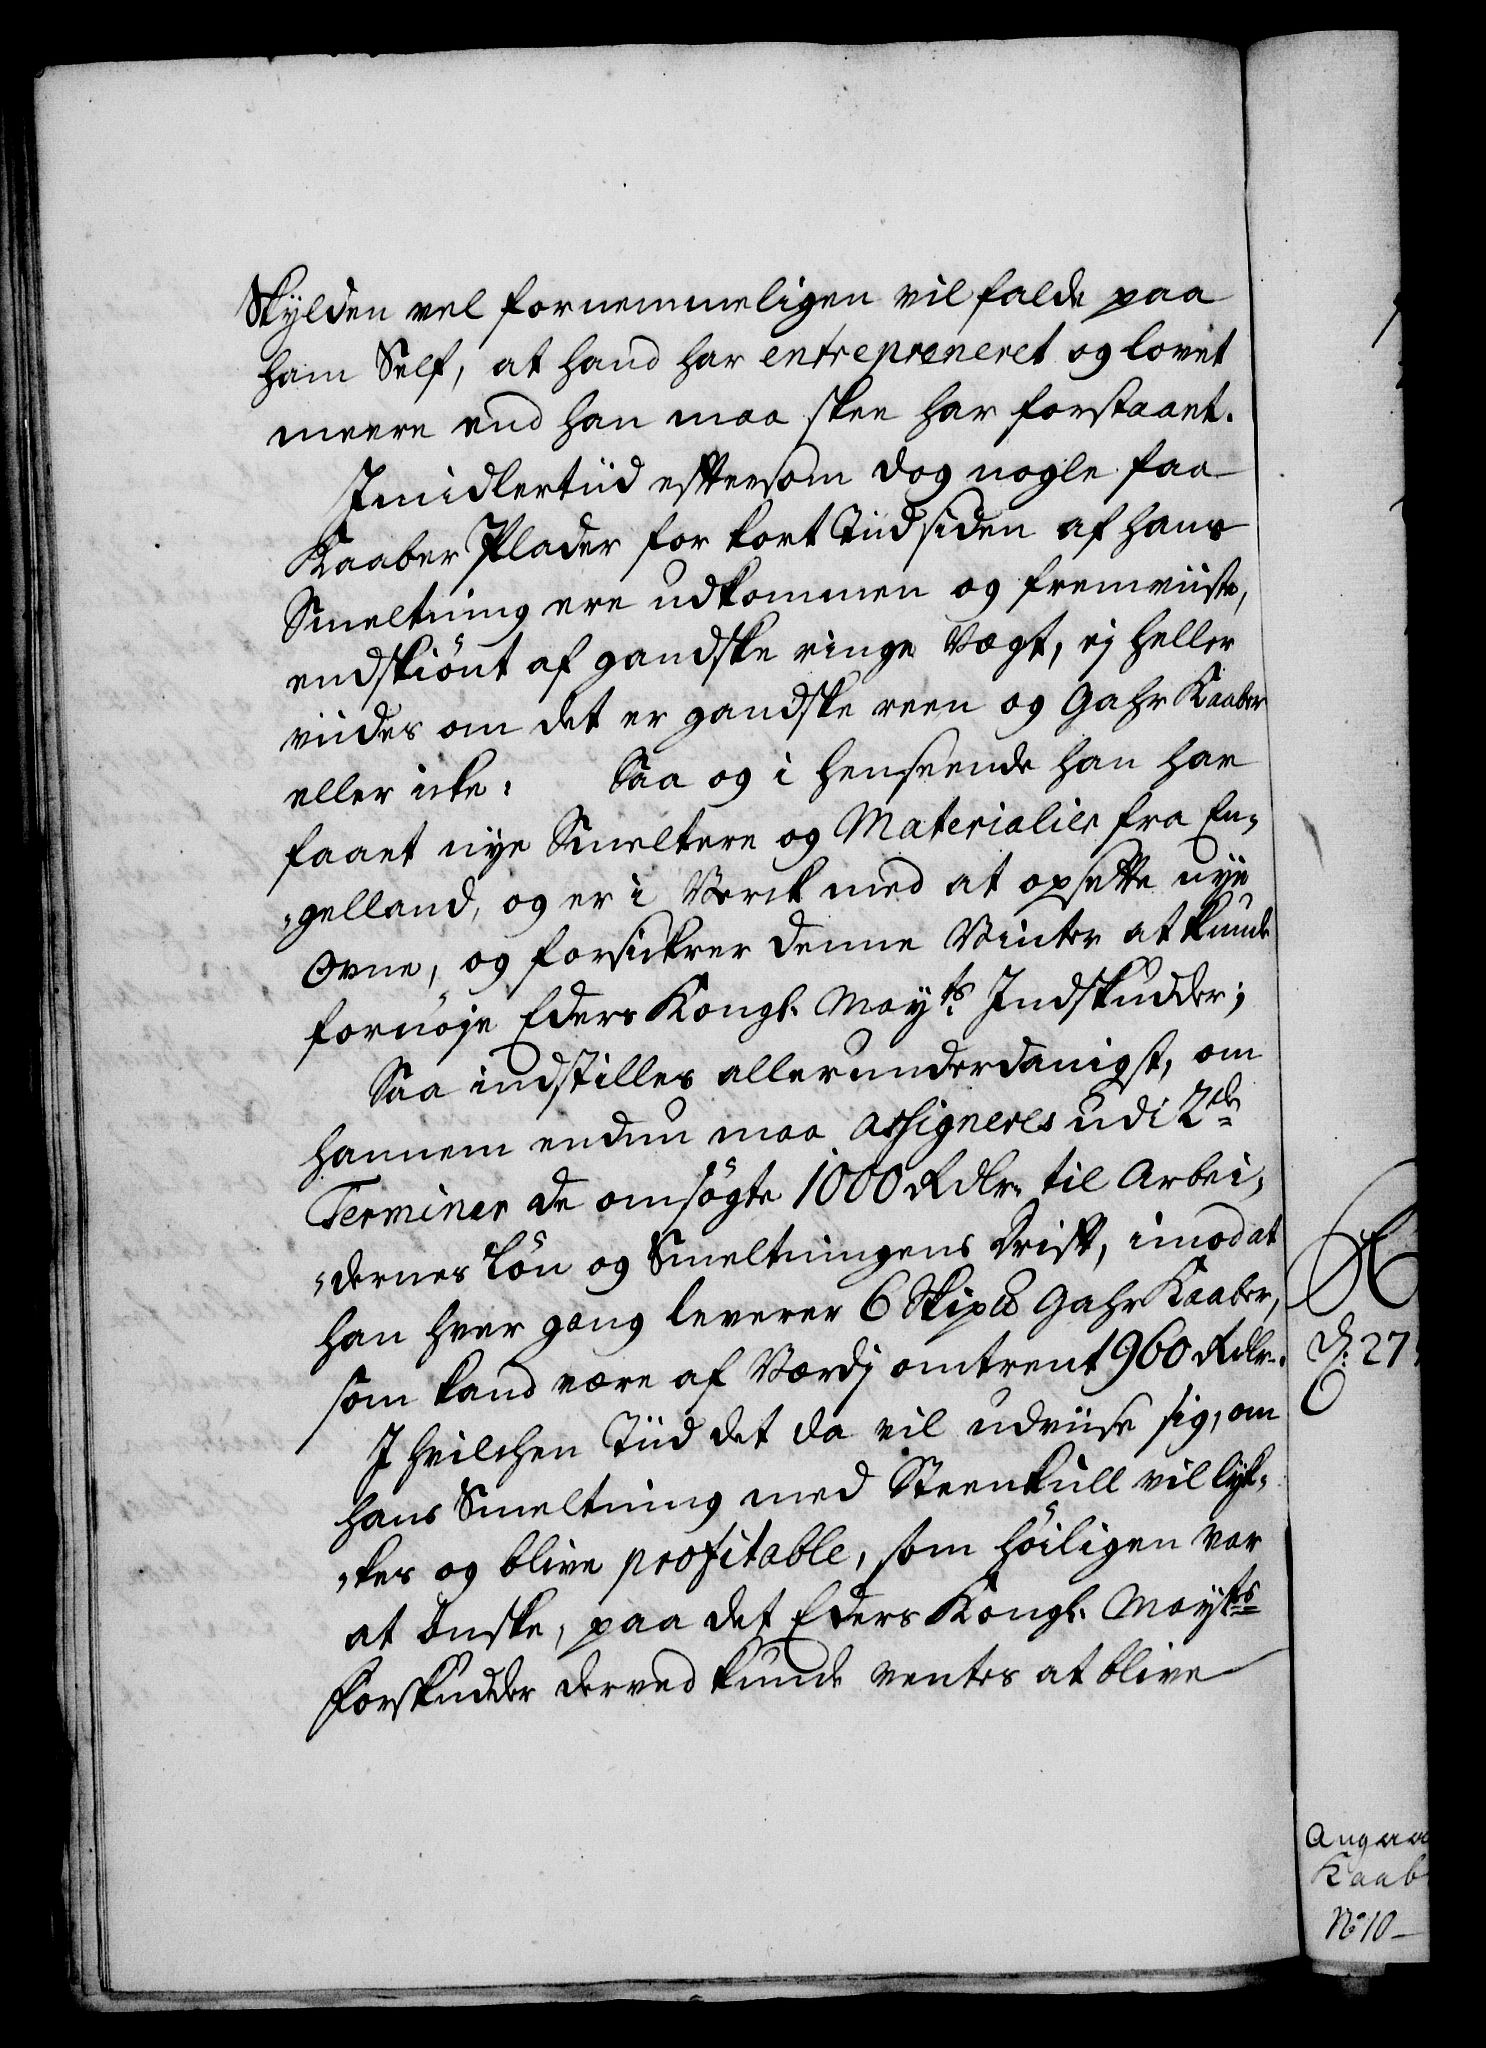 Skylden vel fornemmeligen vil falde paa
ham Self, at hand har entrepreneret og lovet
meere end han maa skee har forstaaet.
Imidlertiid eftersom dog nogle faa
Kaaber Plader for kort Tiid siden af hans
Smeltning ere udkommen og fremviiste,
endskiönt af gandske ringe Vægt, ej heller
viides om det er gandske reen og Gahr Kaaber
eller icke: Saa og i henseende han har
faaet nye Smeltere og Materialier fra En-
-gelland, og er i Verck med at opsette nye
Ovne, og forsickrer denne Vinter at kunde
fornöje Eders Kongl. Mayts Indskudder;
Saa indstilles allerunderdanigst, om
hannem endnu maa assigneres udi 2de
Terminer de omsögte 1000 Rdlr. til Arbei-
-dernes Lön og Smeltningens Drift, imod at
han hver gang leverer 6 Skip℔ Gahr Kaaber,
som kand være af Værdj omtrent 1960 Rdlr.
I hvilchen Tiid det da vil udviise sig, om
hans Smeltning med Steenkull vil lyk-
-kes og blive profitable, som höiligen var
at önske, paa det Eders Kongl. Mayts
Forskudder derved kunde ventes at blive
d. 27
Angaa
Kaab
No 10